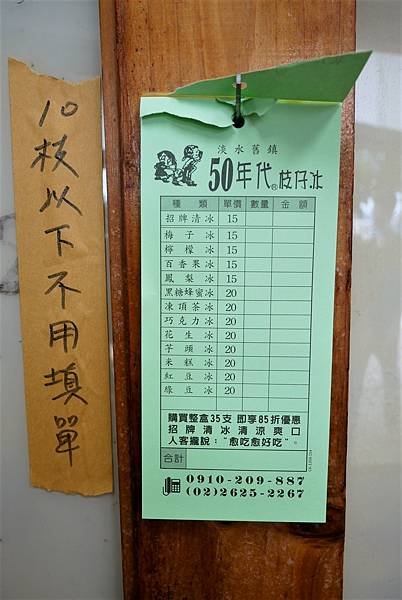 10枝以下不用填單
淡水舊鎮
50年代®枝仔冰
種類 單價 數量 金額
招牌清冰 15
梅子冰 15
檸檬冰 15
百香果冰 15
鳳梨冰 15
黑糖蜂蜜冰 20
凍頂茶冰 20
巧克力冰 20
花生冰 20
芋頭冰 20
米糕冰 20
紅豆冰 20
綠豆冰 20
購買整盒35支 即享85折優惠
招牌清冰清涼爽口
人客攏說："愈吃愈好吃"。
合計
0910-209-887
(02)2625-2267